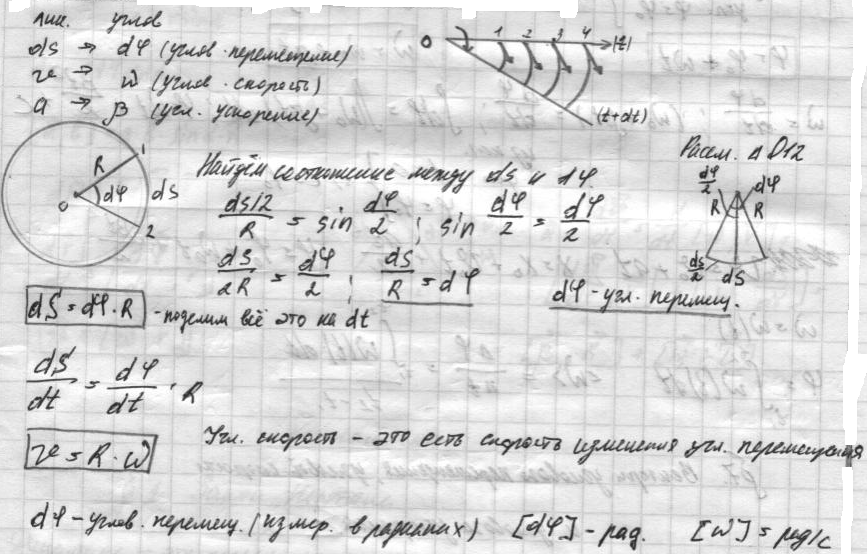 лин. углов
ds → dφ (углов. перемещение)
v → ω (углов. скорость)
a → β (угл. ускорение)
O 1 2 3 4 (t)
(t+dt)
R 1
O dφ dS
2
Найдём соотношение между ds и dφ
Рассм. Δ O12
dφ/2 dφ
R R
ds/2 dS
(ds/2)/R = sin dφ/2 ; sin dφ/2 = dφ/2
dS/2R = dφ/2 ; dS/R = dφ
dφ - угл. перемещ.
dS = dφ · R - поделим всё это на dt
dS/dt = dφ/dt · R
Угл. скорость - это есть скорость изменения угл. перемещения
v = R · ω
dφ - углов. перемещ. (измер. в радианах) [dφ] - рад. [ω] = рад/с